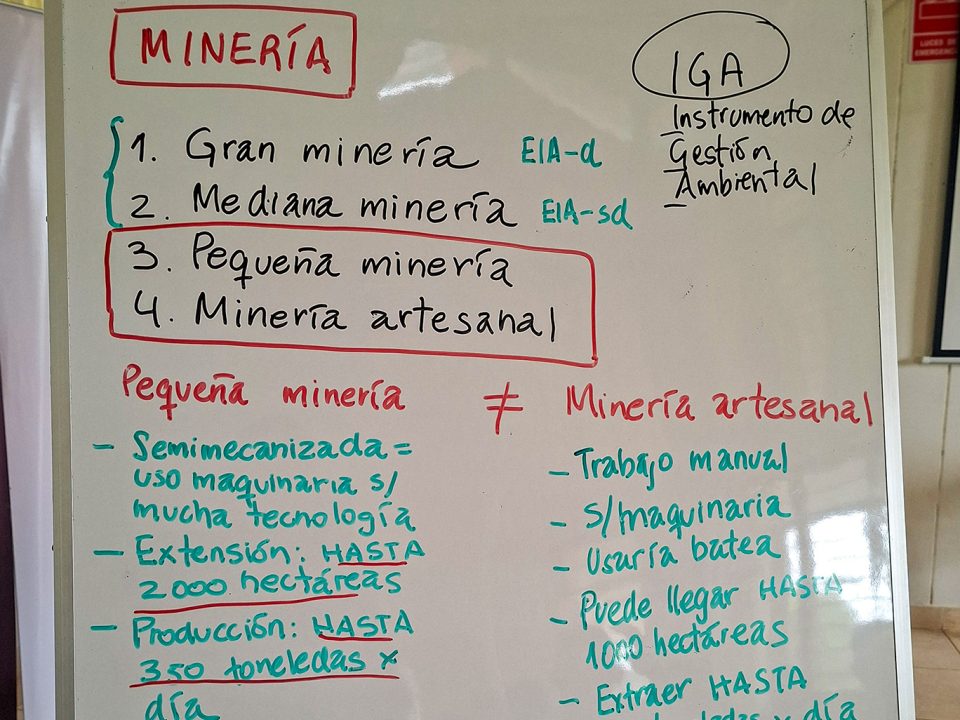 MINERÍA
IGA
Instrumento de
Gestión
Ambiental
1. Gran minería EIA-d
2. Mediana minería EIA-sd
3. Pequeña minería
4. Minería artesanal
Pequeña minería ≠ Minería artesanal
- Semimecanizada =
uso maquinaria s/
mucha tecnología
- Extensión: HASTA
2000 hectáreas
- Producción: HASTA
350 toneledas x
día
- Trabajo manual
- s/maquinaria
- Usaría batea
- Puede llegar HASTA
1000 hectáreas
- Extraer HASTA
x día
LUCES DE
EMERGENCIA